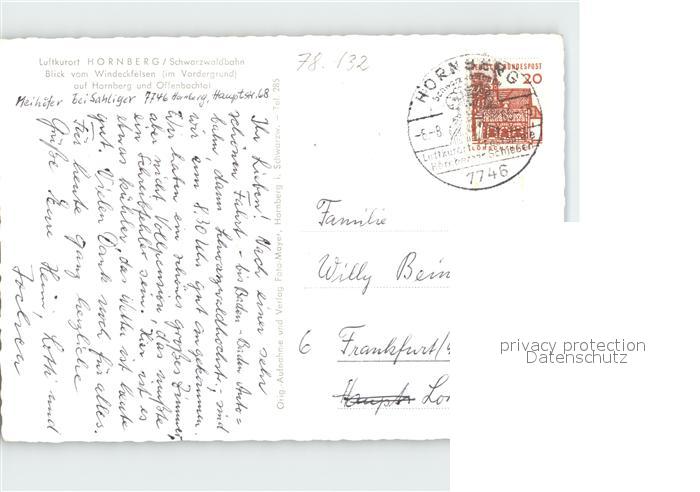 Luftkurort HORNBERG / Schwarzwaldbahn
Blick vom Windeckfelsen (im Vordergrund)
auf Hornberg und Offenbachtal
Meihöfer bei Sahliger 7746 Hornberg, Hauptstr. 68
Ihr Lieben! Nach einer sehr
schönen Fahrt - bis Baden-Baden Auto=
bahn, dann Schwarzwaldhochstr., sind
wir um 8.30 Uhr gut angekommen.
Wir haben ein schönes großes Zimmer,
aber nicht Vollpension, das mußte
ein Schreibfehler sein. Hier ist es
etwas kühler, das Wetter ist heute
gut. Vielen Dank noch für alles.
Für heute ganz herzliche
Grüße Eure Heini, Lotti und
Jochen
Orig.-Aufnahme und Verlag Foto-Mayer, Hornberg i. Schwarzw. - Tel. 285
78.132
DEUTSCHE BUNDESPOST
20
HORNBERG
-6.-8.
Luftkurort
Hornberger Schießen
7746
Familie
Willy Bein
6 Frankfurt/
Haupts Lo
privacy protection
Datenschutz